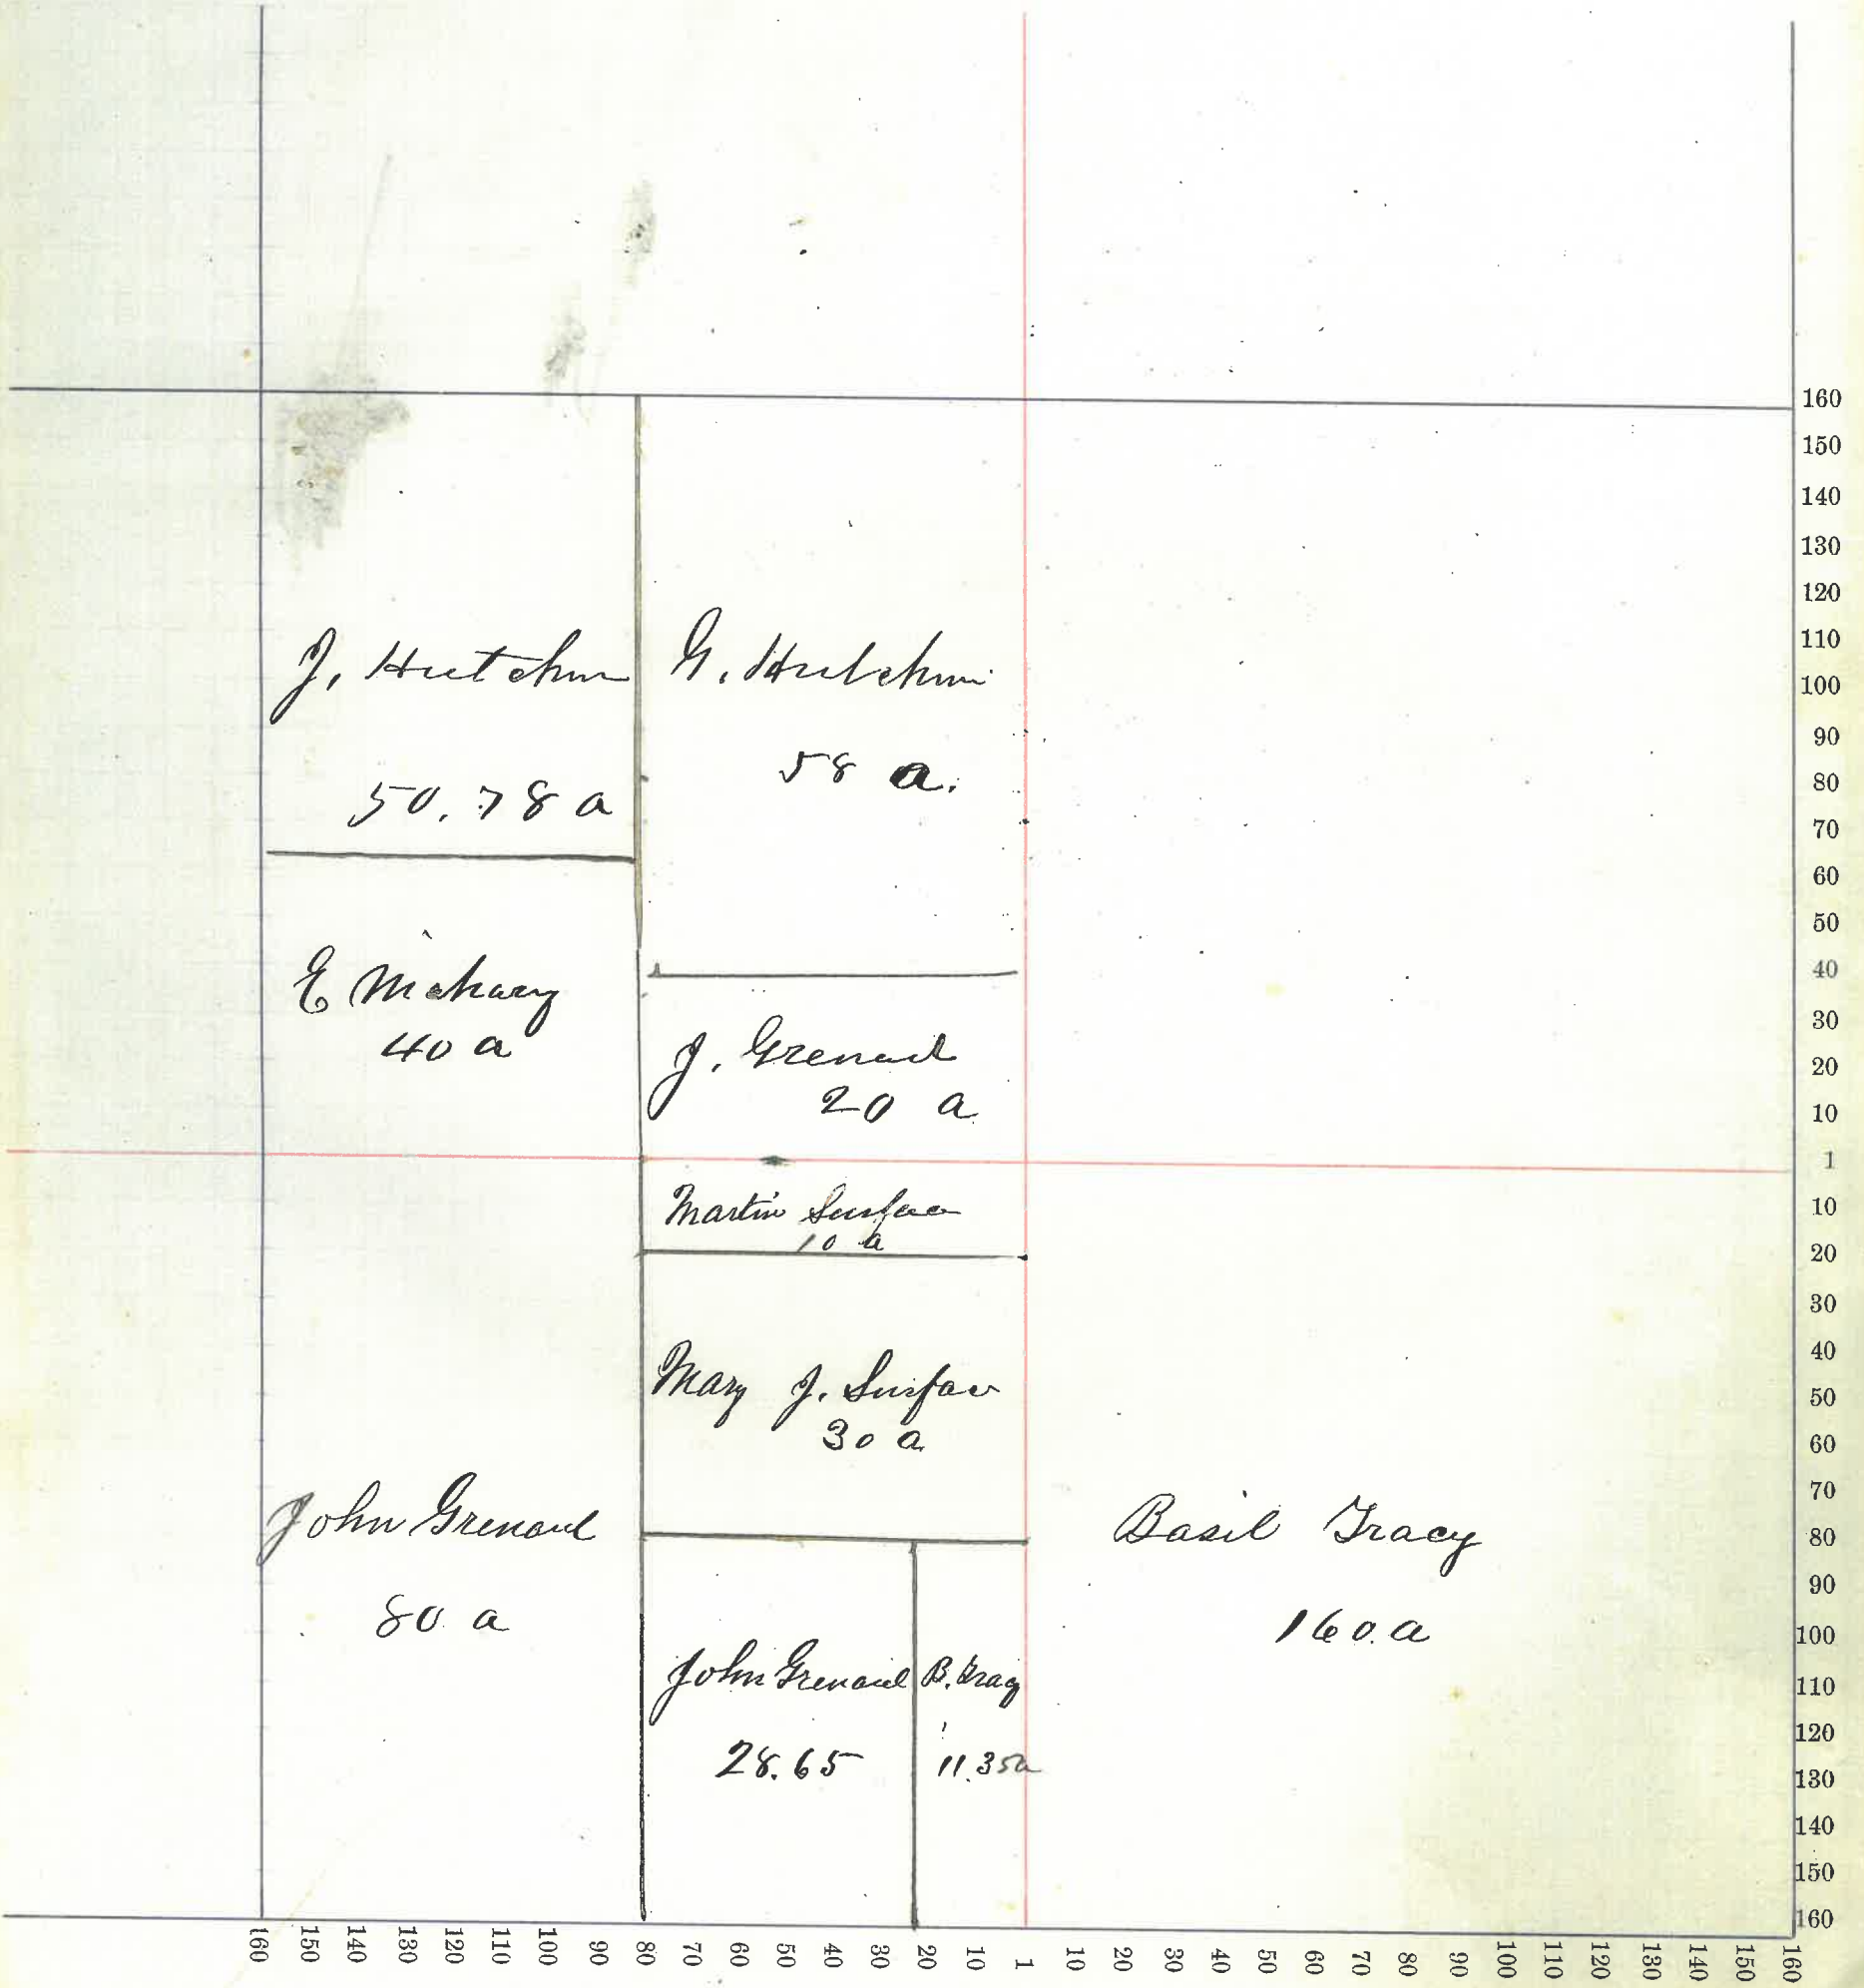 J. Hutchin
50.78 a
G. Hutchin
58 a.
E Mcharg
40 a
J. Grenard
20 a
Martin Surface
10 a
Mary J. Surface
30 a
John Grenard
80 a
John Grenard
28.65
B. Tracy
11.35a
Basil Tracy
160. a
160
150
140
130
120
110
100
90
80
70
60
50
40
30
20
10
1
10
20
30
40
50
60
70
80
90
100
110
120
130
140
150
160
160 150 140 130 120 110 100 90 80 70 60 50 40 30 20 10 1 10 20 30 40 50 60 70 80 90 100 110 120 130 140 150 160